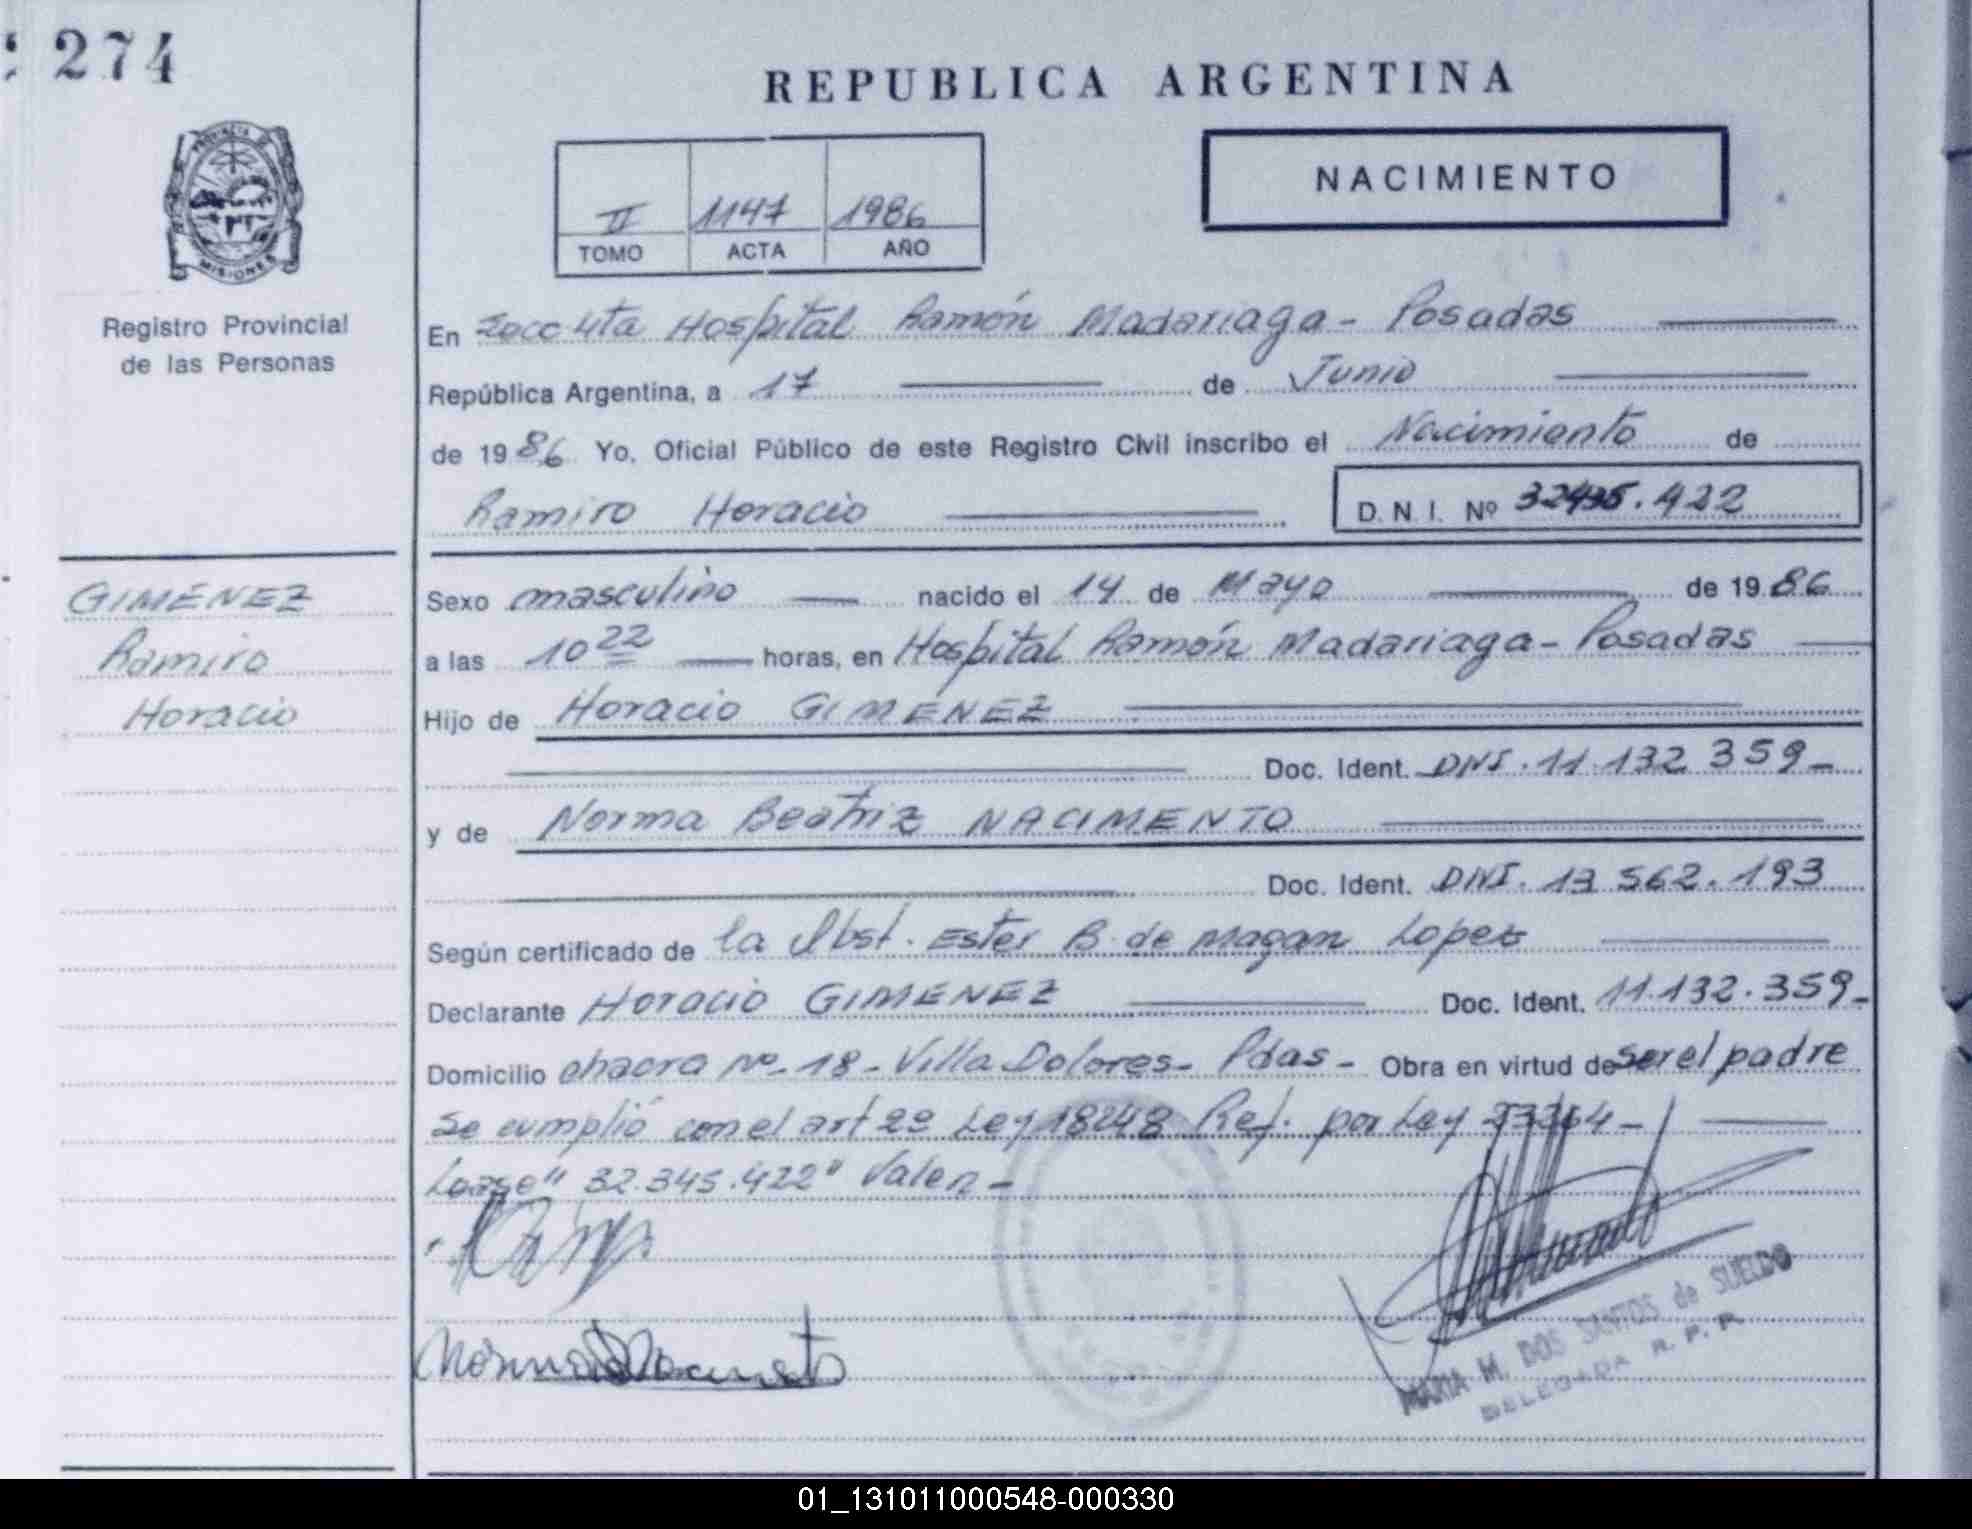 274
REPUBLICA ARGENTINA
NACIMIENTO
II 1147 1986
TOMO ACTA AÑO
PROVINCIA DE
MISIONES
Registro Provincial
de las Personas
En Secc 4ta Hospital Ramón Madariaga - Posadas
República Argentina, a 17 de Junio
de 1986 Yo, Oficial Público de este Registro Civil inscribo el Nacimiento de
Ramiro Horacio D. N. I. Nº .422
GIMÉNEZ
Ramiro
Horacio
Sexo masculino nacido el 14 de Mayo de 1986
a las 10 22 horas, en Hospital Ramón Madariaga - Posadas
Hijo de Horacio GIMÉNEZ
Doc. Ident. DNI. 11.132 359 -
y de Norma Beatriz NACIMENTO
Doc. Ident. DNI. 13 562.193
Según certificado de la Obst. Ester B. de Magan Lopez
Declarante Horacio GIMENEZ Doc. Ident. 11.132.359 -
Domicilio chacra Nº - 18 - Villa Dolores - Pdas - Obra en virtud de ser el padre
Se cumplió con el art 2º Ley 18248 Ref. por Ley 23264 -
" 32.345.422" Valen -
MARIA M. DOS SANTOS de SUELDO
DELEGADA R. P. P.
01_131011000548-000330